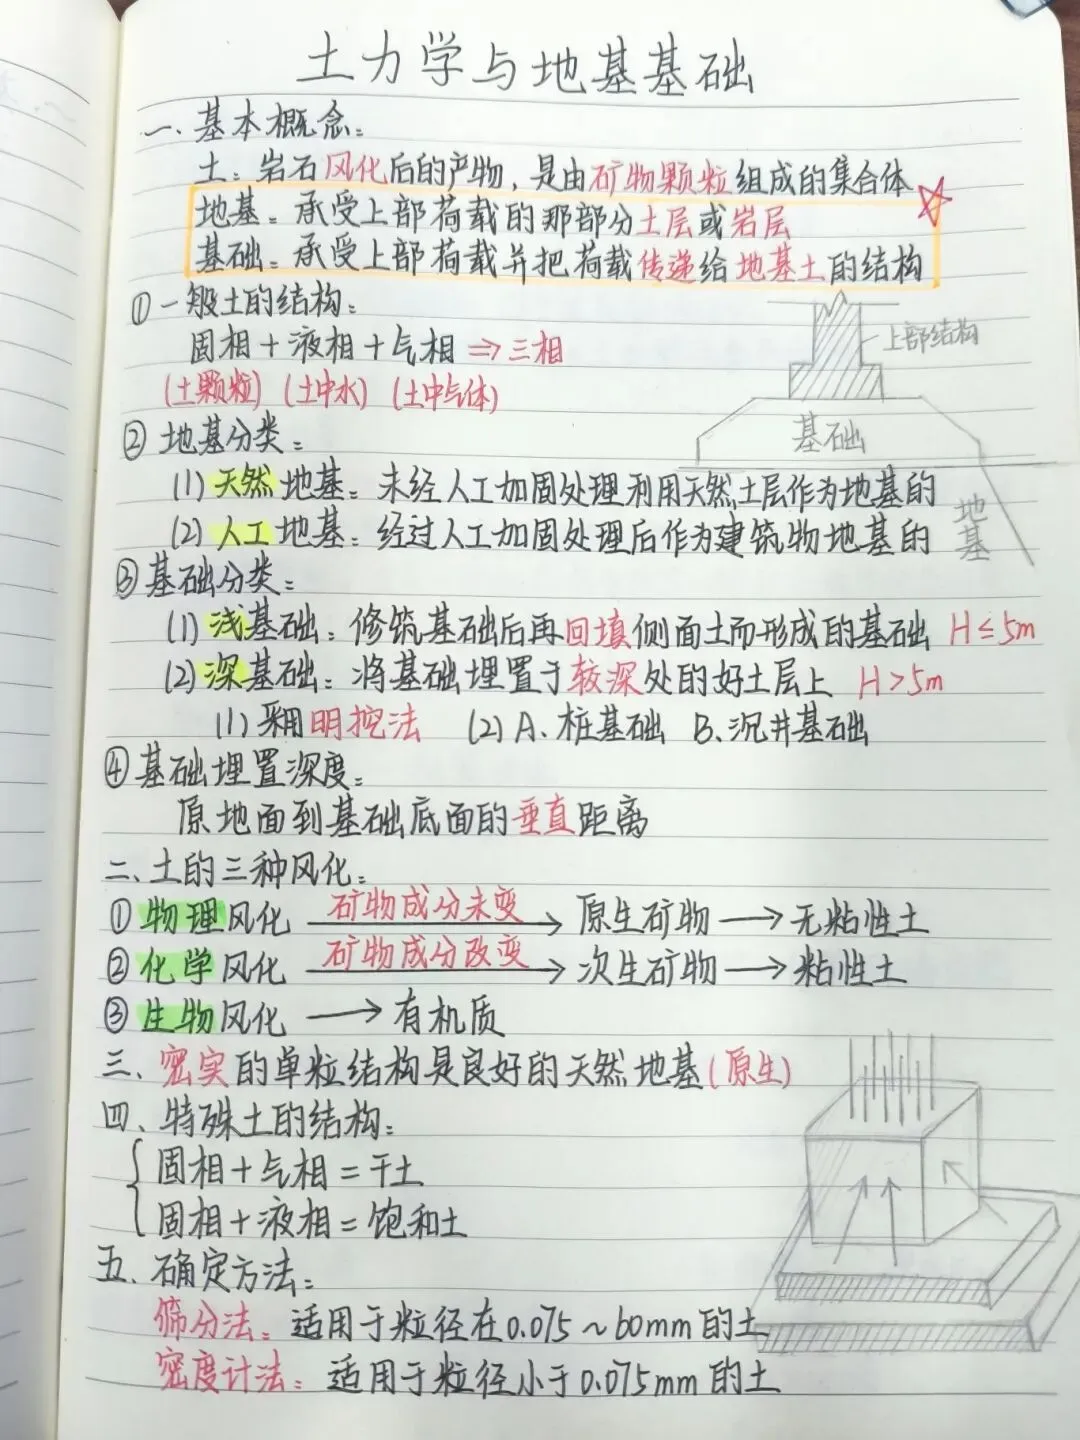 土力学与地基基础
一、基本概念：
土：岩石风化后的产物，是由矿物颗粒组成的集合体
地基：承受上部荷载的那部分土层或岩层
基础：承受上部荷载并把荷载传递给地基土的结构
①一般土的结构：
固相+液相+气相⇒三相
(土颗粒) (土中水) (土中气体)
上部结构
基础
地基
②地基分类：
(1)天然地基：未经人工加固处理利用天然土层作为地基的
(2)人工地基：经过人工加固处理后作为建筑物地基的
③基础分类：
(1)浅基础：修筑基础后再回填侧面土而形成的基础 H≤5m
(2)深基础：将基础埋置于较深处的好土层上 H>5m
(1)采用明挖法 (2)A、桩基础 B、沉井基础
④基础埋置深度：
原地面到基础底面的垂直距离
二、土的三种风化：
①物理风化 矿物成分未变→原生矿物→无粘性土
②化学风化 矿物成分改变→次生矿物→粘性土
③生物风化→有机质
三、密实的单粒结构是良好的天然地基(原生)
四、特殊土的结构：
固相+气相=干土
固相+液相=饱和土
五、确定方法：
筛分法：适用于粒径在0.075~60mm的土
密度计法：适用于粒径小于0.075mm的土